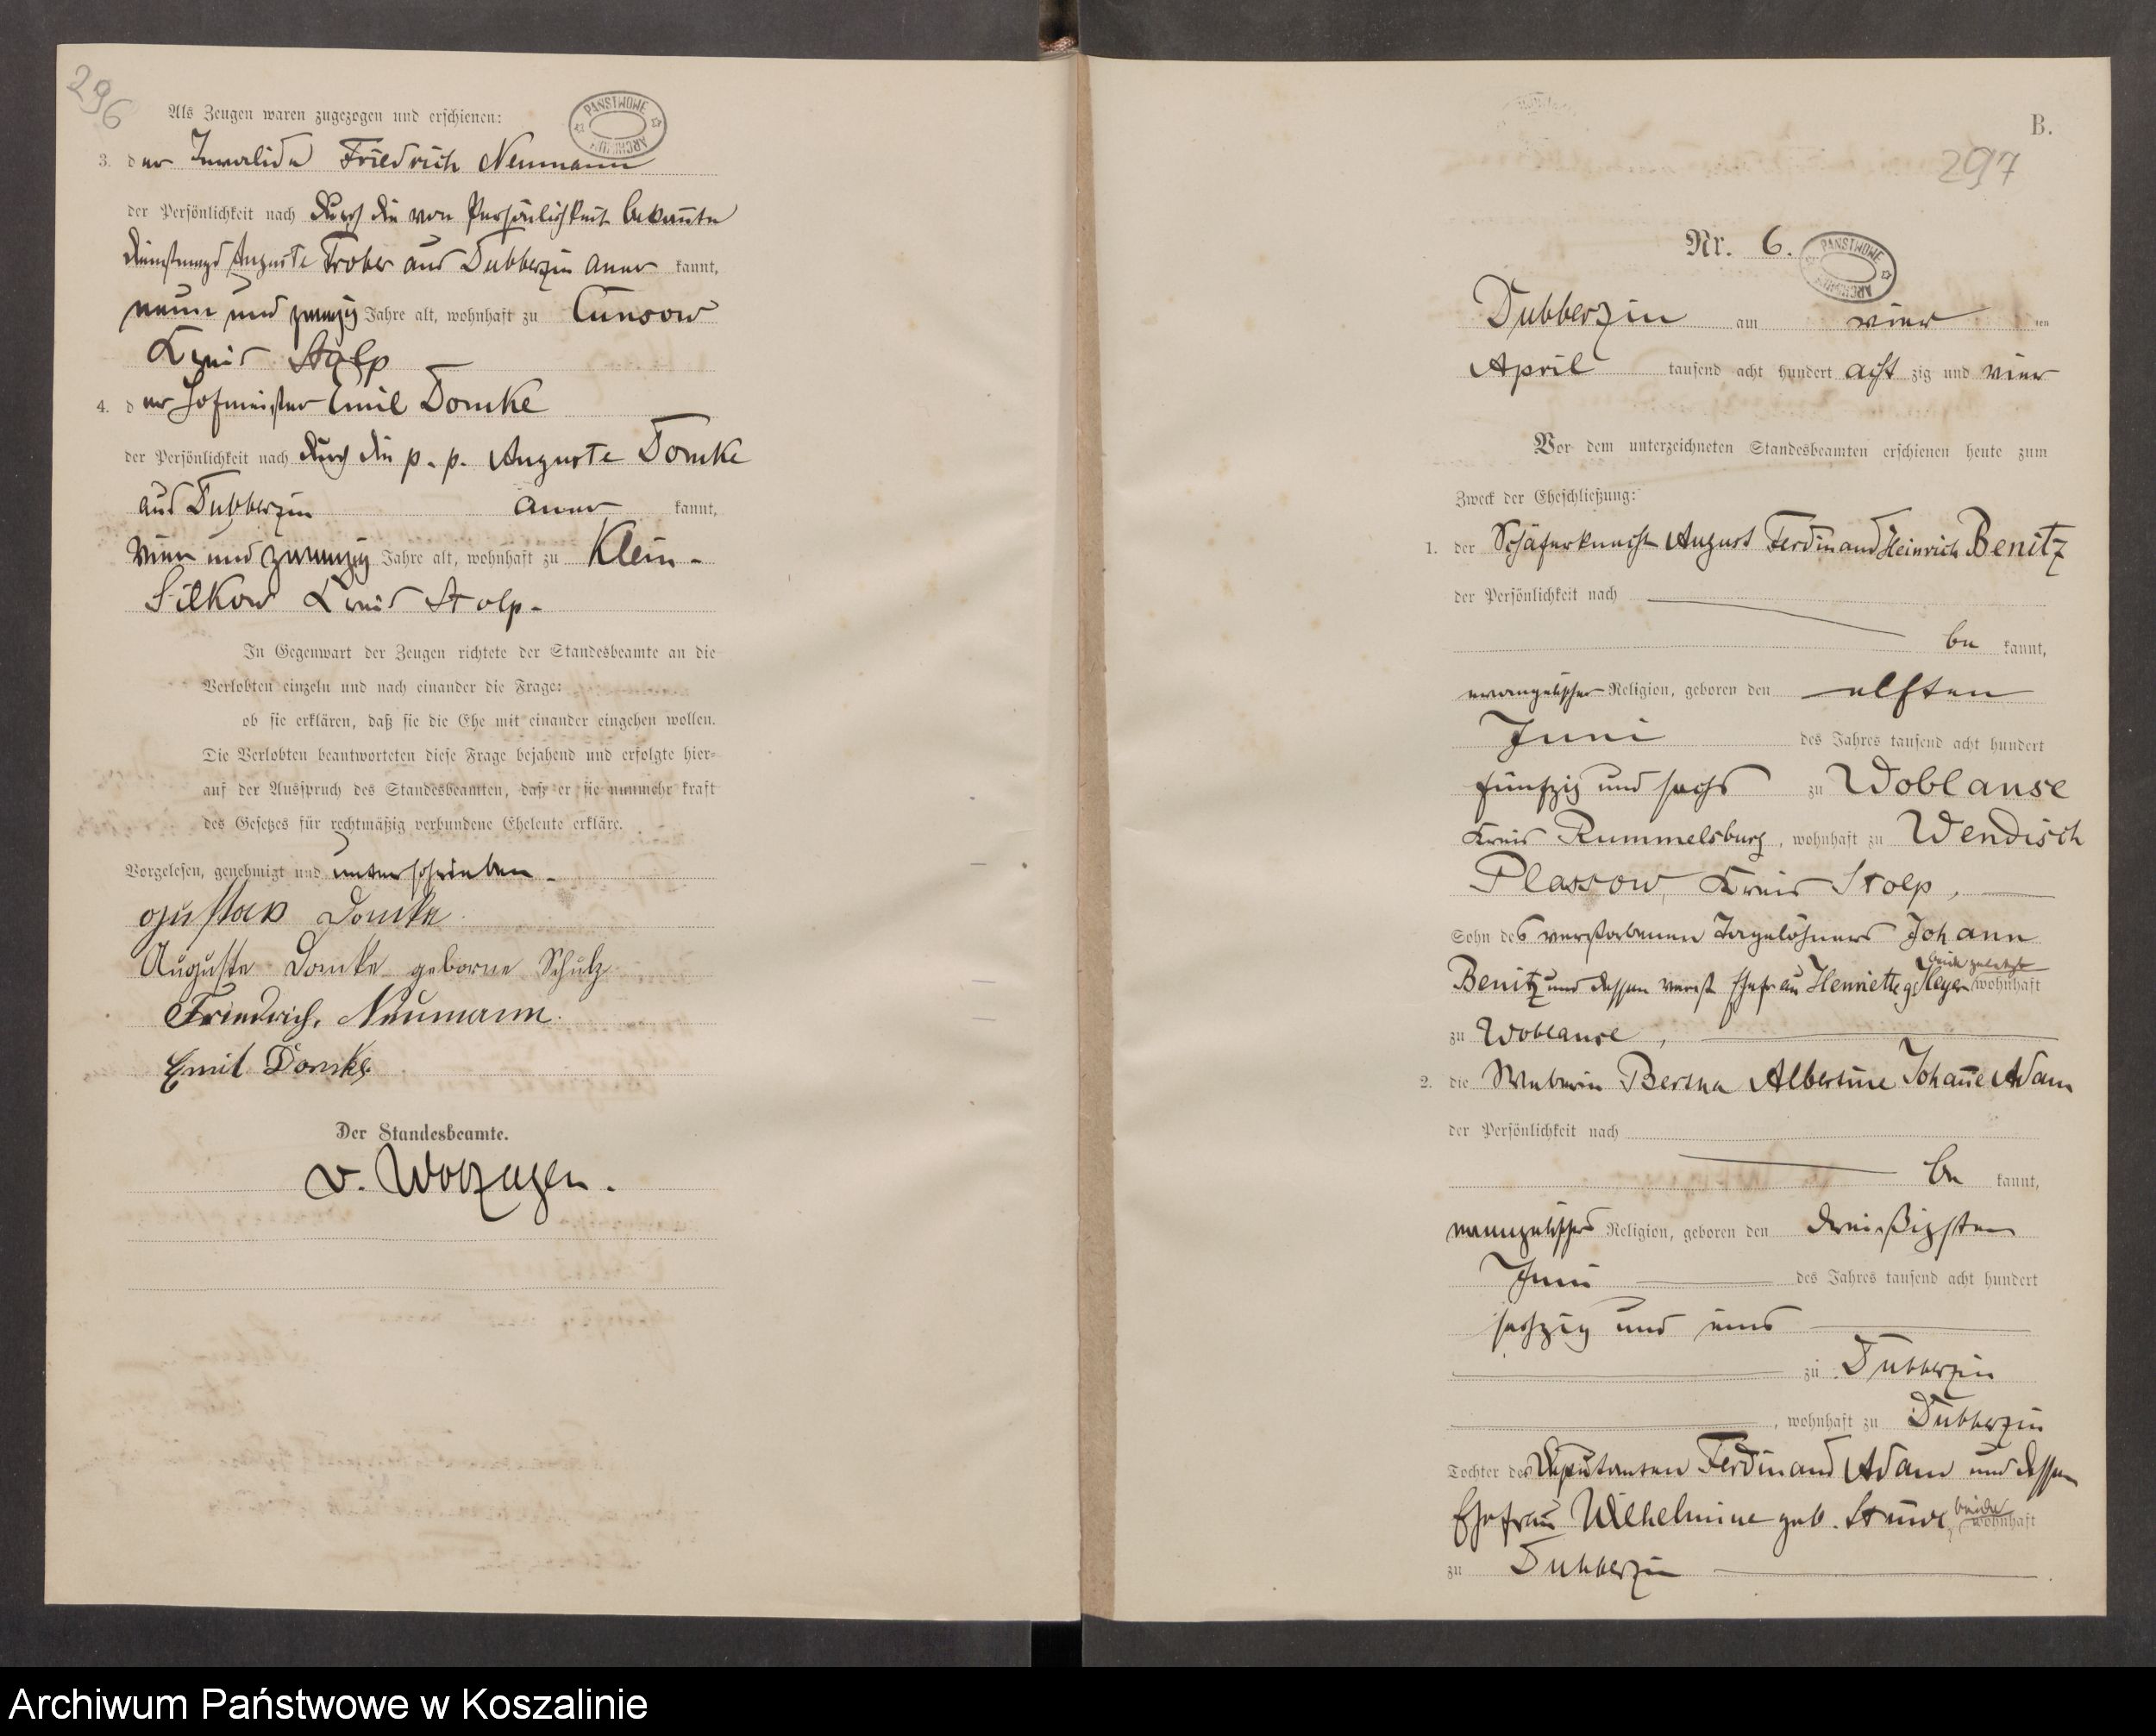 296
Als Zeugen waren zugezogen und erschienen:
PAŃSTWOWE ARCHIWUM
3. der Invalide Friedrich Neumann
der Persönlichkeit nach durch die von Persönlichkeit bekannte
Dienstmagd Auguste Trober aus Dubberzin aner kannt,
neun und zwanzig Jahre alt, wohnhaft zu Cunsow
Kreis Stolp
4. der Hofmeister Emil Domke
der Persönlichkeit nach durch die p. p. Auguste Domke
aus Dubberzin aner kannt,
vier und zwanzig Jahre alt, wohnhaft zu Klein-
Silkow Kreis Stolp.
In Gegenwart der Zeugen richtete der Standesbeamte an die
Verlobten einzeln und nach einander die Frage:
ob sie erklären, daß sie die Ehe mit einander eingehen wollen.
Die Verlobten beantworteten diese Frage bejahend und erfolgte hier-
auf der Ausspruch des Standesbeamten, daß er sie nunmehr kraft
des Gesetzes für rechtmäßig verbundene Eheleute erkläre.
Vorgelesen, genehmigt und unterschrieben.
Gustav Domke
Auguste Domke geborne Schulz
Friedrich Neumann.
Emil Domke
Der Standesbeamte.
v. Wolzogen.
B.
297
Nr. 6.
PAŃSTWOWE ARCHIWUM
Dubberzin am vier ten
April tausend acht hundert acht zig und vier
Vor dem unterzeichneten Standesbeamten erschienen heute zum
Zweck der Eheschließung:
1. der Schäferknecht August Ferdinand Heinrich Benitz
der Persönlichkeit nach
be kannt,
evangelischer Religion, geboren den elften
Juni des Jahres tausend acht hundert
fünfzig und sechs zu Woblanse
Kreis Rummelsburg, wohnhaft zu Wendisch
Plassow, Kreis Stolp,
Sohn des verstorbenen Tagelöhners Johann
beide zuletzt
Benitz und dessen verst Ehefrau Henriette g. Heyer wohnhaft
zu Woblanse,
2. die Weberin Bertha Albertine Johanne Adam
der Persönlichkeit nach
be kannt,
evangelischer Religion, geboren den dreißigsten
Juni des Jahres tausend acht hundert
sechzig und eins
zu Dubberzin
, wohnhaft zu Dubberzin
Tochter des Deputanten Ferdinand Adam und dessen
beide
Ehefrau Wilhelmine geb. wohnhaft
zu Dubberzin
Archiwum Państwowe w Koszalinie